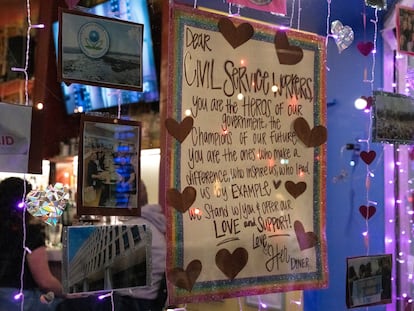 Dear
Civil Service Workers
you are the Heros of our
government. the
Champions of our future.
you are the ones who make a
difference, who inspire us, who lead
us by Example.
We Stand w/you & offer our
Love and Support!
Love,
Diner
AID